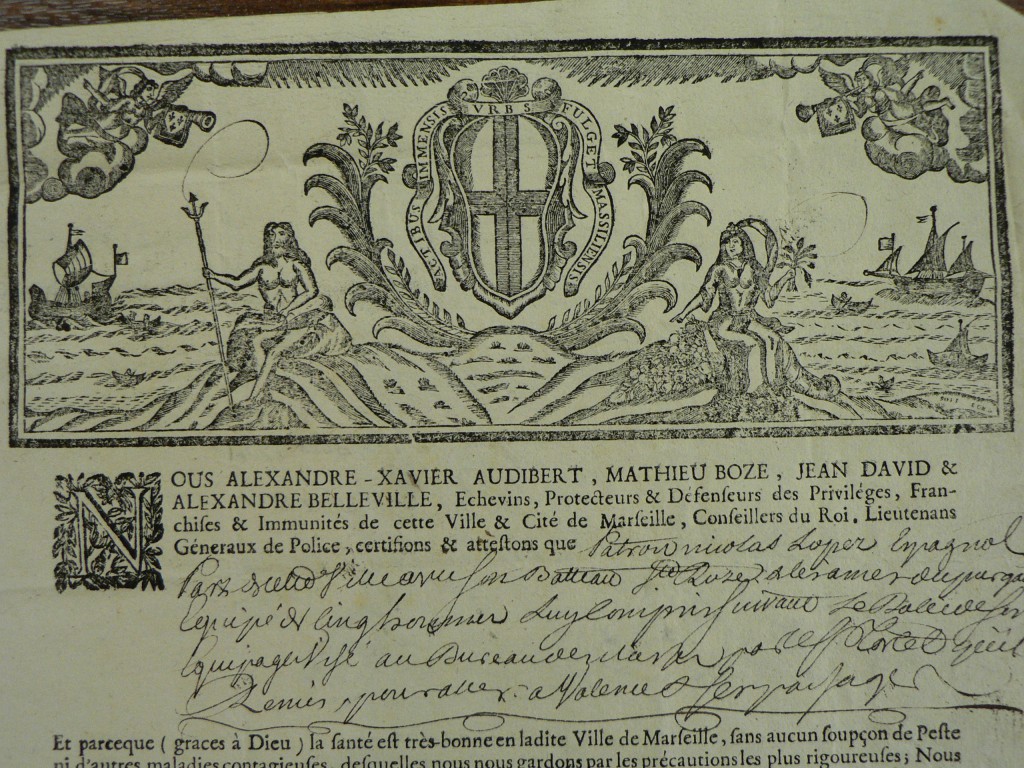 ACTIBUS IMMENSIS VRBS FULGET MASSILIENSIS
NOUS ALEXANDRE-XAVIER AUDIBERT, MATHIEU BOZE, JEAN DAVID &
ALEXANDRE BELLEVILLE, Echevins, Protecteurs & Défenseurs des Priviléges, Fran-
chises & Immunités de cette Ville & Cité de Marseille, Conseillers du Roi, Lieutenans
Géneraux de Police, certifions & attestons que Patron nicolas Lopez Espagnol
Part de cette Ville avec son Batteau
Equipé de Cinq hommes Luy Compris suivant Le Role de son
Equipage Visé au Bureau des
pour aller a Valence &
Et parceque ( graces à Dieu ) la santé est très-bonne en ladite Ville de Marseille, sans aucun soupçon de Peste
ni d'autres maladies contagieuses, desquelles nous nous gardons par les précautions les plus rigoureuses; Nous